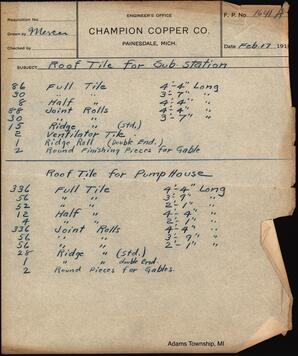 Requisition No.
ENGINEER'S OFFICE
F. P. No. 1641 A
Drawn by Mercer
CHAMPION COPPER CO.
Checked by
PAINESDALE, MICH.
Date Feb. 17 191
SUBJECT Roof Tile for Sub-Station
86 Full Tile 4'-4" Long
30 " " 3'-7" "
8 Half " 4'-4" "
88 Joint Rolls 4'-4" "
30 " " 3'-7" "
15 Ridge " (Std.)
2 Ventilator Tile
1 Ridge Roll (Double End.)
2 Round Finishing Pieces for Gable
Roof Tile for Pump House
336 Full Tile 4'-4" Long
56 " " 3'-7" "
52 " " 2'-1" "
12 Half " 4'-4" "
4 " " 2'-1" "
336 Joint Rolls 4'-4" "
56 " " 3'-7" "
56 " " 2'-1" "
28 Ridge " (Std.)
1 " " Double End.
2 Round Pieces for Gables.
Adams Township, MI